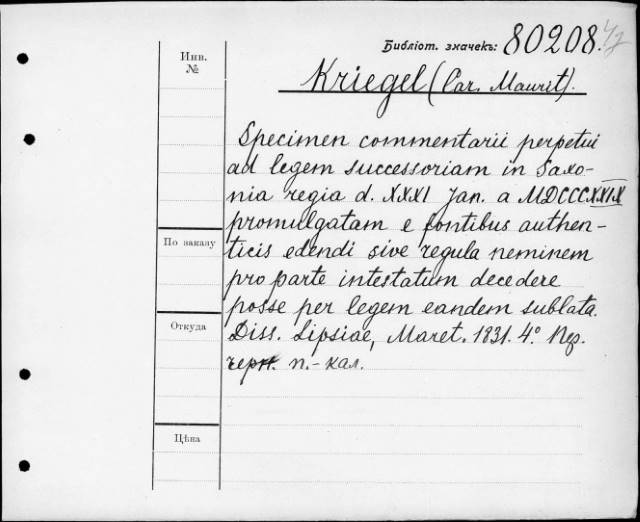 Библіот. значекъ: 80208.
Инв.
№
Kriegel (Car. Maurit).
Specimen commentarii perpetui
ad legem successoriam in Saxo-
nia regia d. XXXI Jan. a MDCCCXXIX
promulgatam e fontibus authen-
ticis edendi sive regula neminem
pro parte intestatum decedere
posse per legem eandem sublata.
Diss. Lipsiae, Maret. 1831. 4º. Пер.
черн. п.-кал.
По заказу
Откуда
Цѣна